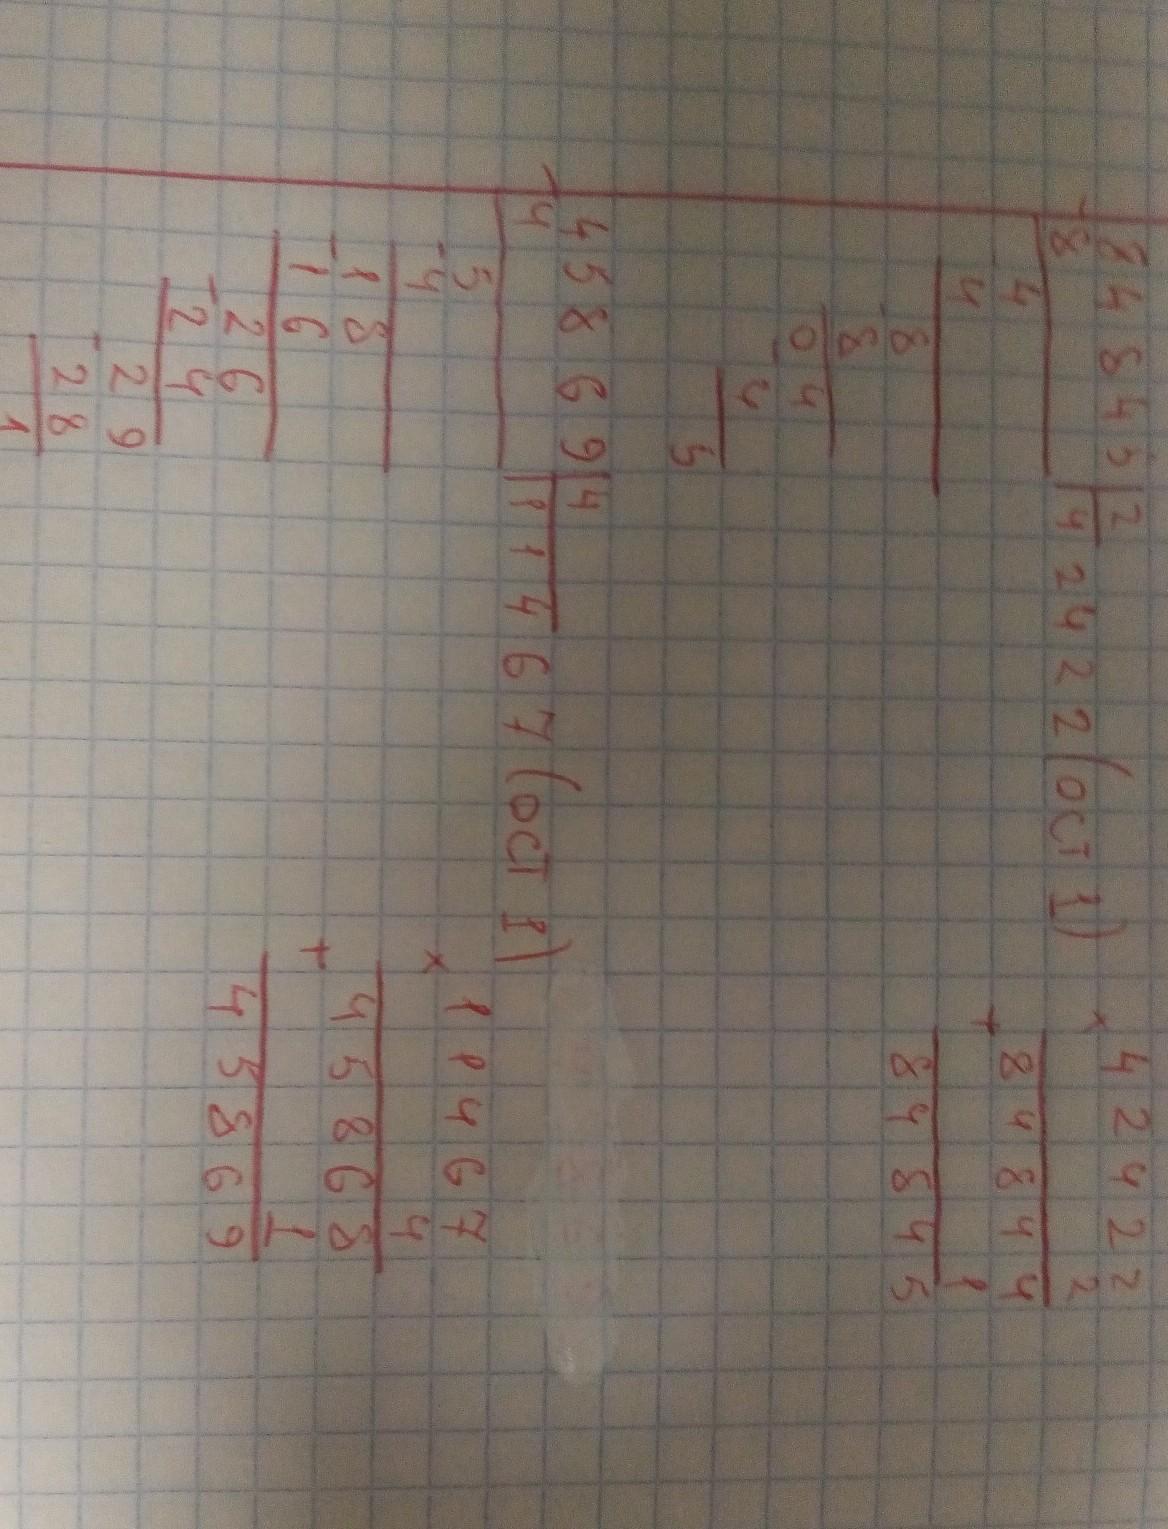 84845 2
-8 42422 (ост 1)
4
4
8
-8
04
-4
5
× 42422
2
84844
+ 1
84845
45869 4
-4 11467 (ост 1)
5
-4
18
-16
26
-24
29
-28
1
× 11467
4
45868
+ 1
45869